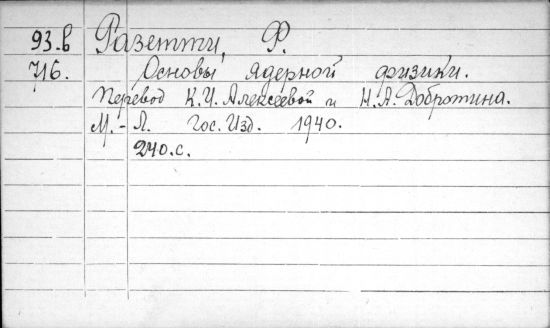 93.в Разетти, Ф.
716. Основы ядерной физики.
Перевод К.И. Алексеевой и Н.А. Добротина.
М.-Л. Гос. Изд. 1940.
240.с.